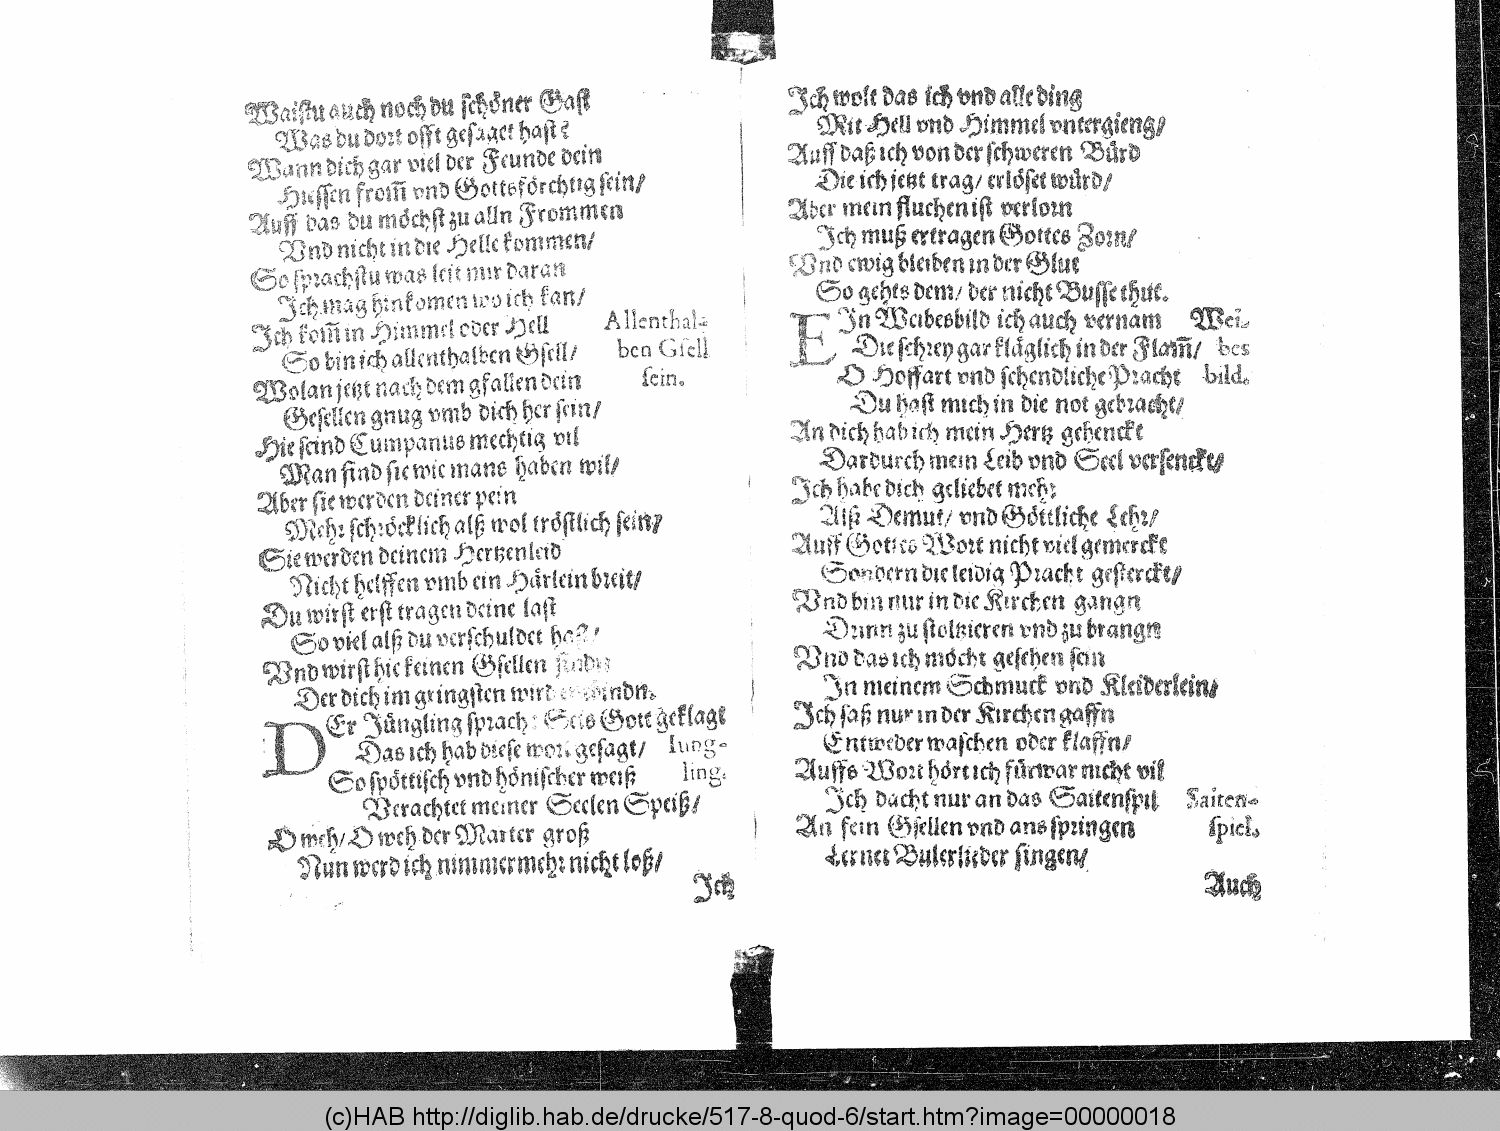 Waistu auch noch du schöner Gast
Was du dort offt gesaget hast?
Wann dich gar viel der Feunde dein
Hiessen from̃ vnd Gottsförchtig sein/
Auff das du möchst zu alln Frommen
Vnd nicht in die Helle kommen/
So sprachstu was leit mir daran
Ich mag hinkomen wo ich kan/
Ich kom̃ in Himmel oder Hell
So bin ich allenthalben Gsell/
Allenthal-
ben Gsell
sein.
Wolan jetzt nach dem gfallen dein
Gesellen gnug vmb dich her sein/
Hie seind Cumpanus mechtig vil
Man find sie wie mans haben wil/
Aber sie werden deiner pein
Mehr schröcklich alß wol tröstlich sein/
Sie werden deinem Hertzenleid
Nicht helffen vmb ein Härlein breit/
Du wirst erst tragen deine last
So viel alß du verschuldet hast/
Vnd wirst hie keinen Gsellen
Der dich im gringsten wird
DEr Jüngling sprach: Seis Gott geklagt
Das ich hab diese wort gesagt/
Iung-
ling.
So spöttisch vnd hönischer weiß
Verachtet meiner Seelen Speiß/
O weh/ O weh der Marter groß
Nun werd ich nimmermehr nicht loß/
Ich
Ich wolt das ich vnd alle ding
Mit Hell vnd Himmel vntergieng/
Auff daß ich von der schweren Bürd
Die ich jetzt trag/ erlöset würd/
Aber mein fluchen ist verlorn
Ich muß ertragen Gottes Zorn/
Vnd ewig bleiben in der Glut
So gehts dem/ der nicht Busse thut.
EIn Weibesbild ich auch vernam
Die schrey gar kläglich in der Flam̃/
O Hoffart vnd schendliche Pracht
Wei-
bes
bild.
Du hast mich in die not gebracht/
An dich hab ich mein Hertz gehenckt
Dardurch mein Leib vnd Seel versenckt/
Ich habe dich geliebet mehr
Alß Demut/ vnd Göttliche Lehr/
Auff Gottes Wort nicht viel gemerckt
Sondern die leidig Pracht gesterckt/
Vnd bin nur in die Kirchen gangn
Drinn zu stoltzieren vnd zu brangn
Vnd das ich möcht gesehen sein
In meinem Schmuck vnd Kleiderlein/
Ich saß nur in der Kirchen gaffn
Entweder waschen oder klaffn/
Auffs Wort hört ich fürwar nicht vil
Ich dacht nur an das Saitenspil
Saiten-
spiel.
An sein Gsellen vnd ans springen
Lernet Bulerlieder singen/
Auch
(c)HAB http://diglib.hab.de/drucke/517-8-quod-6/start.htm?image=00000018